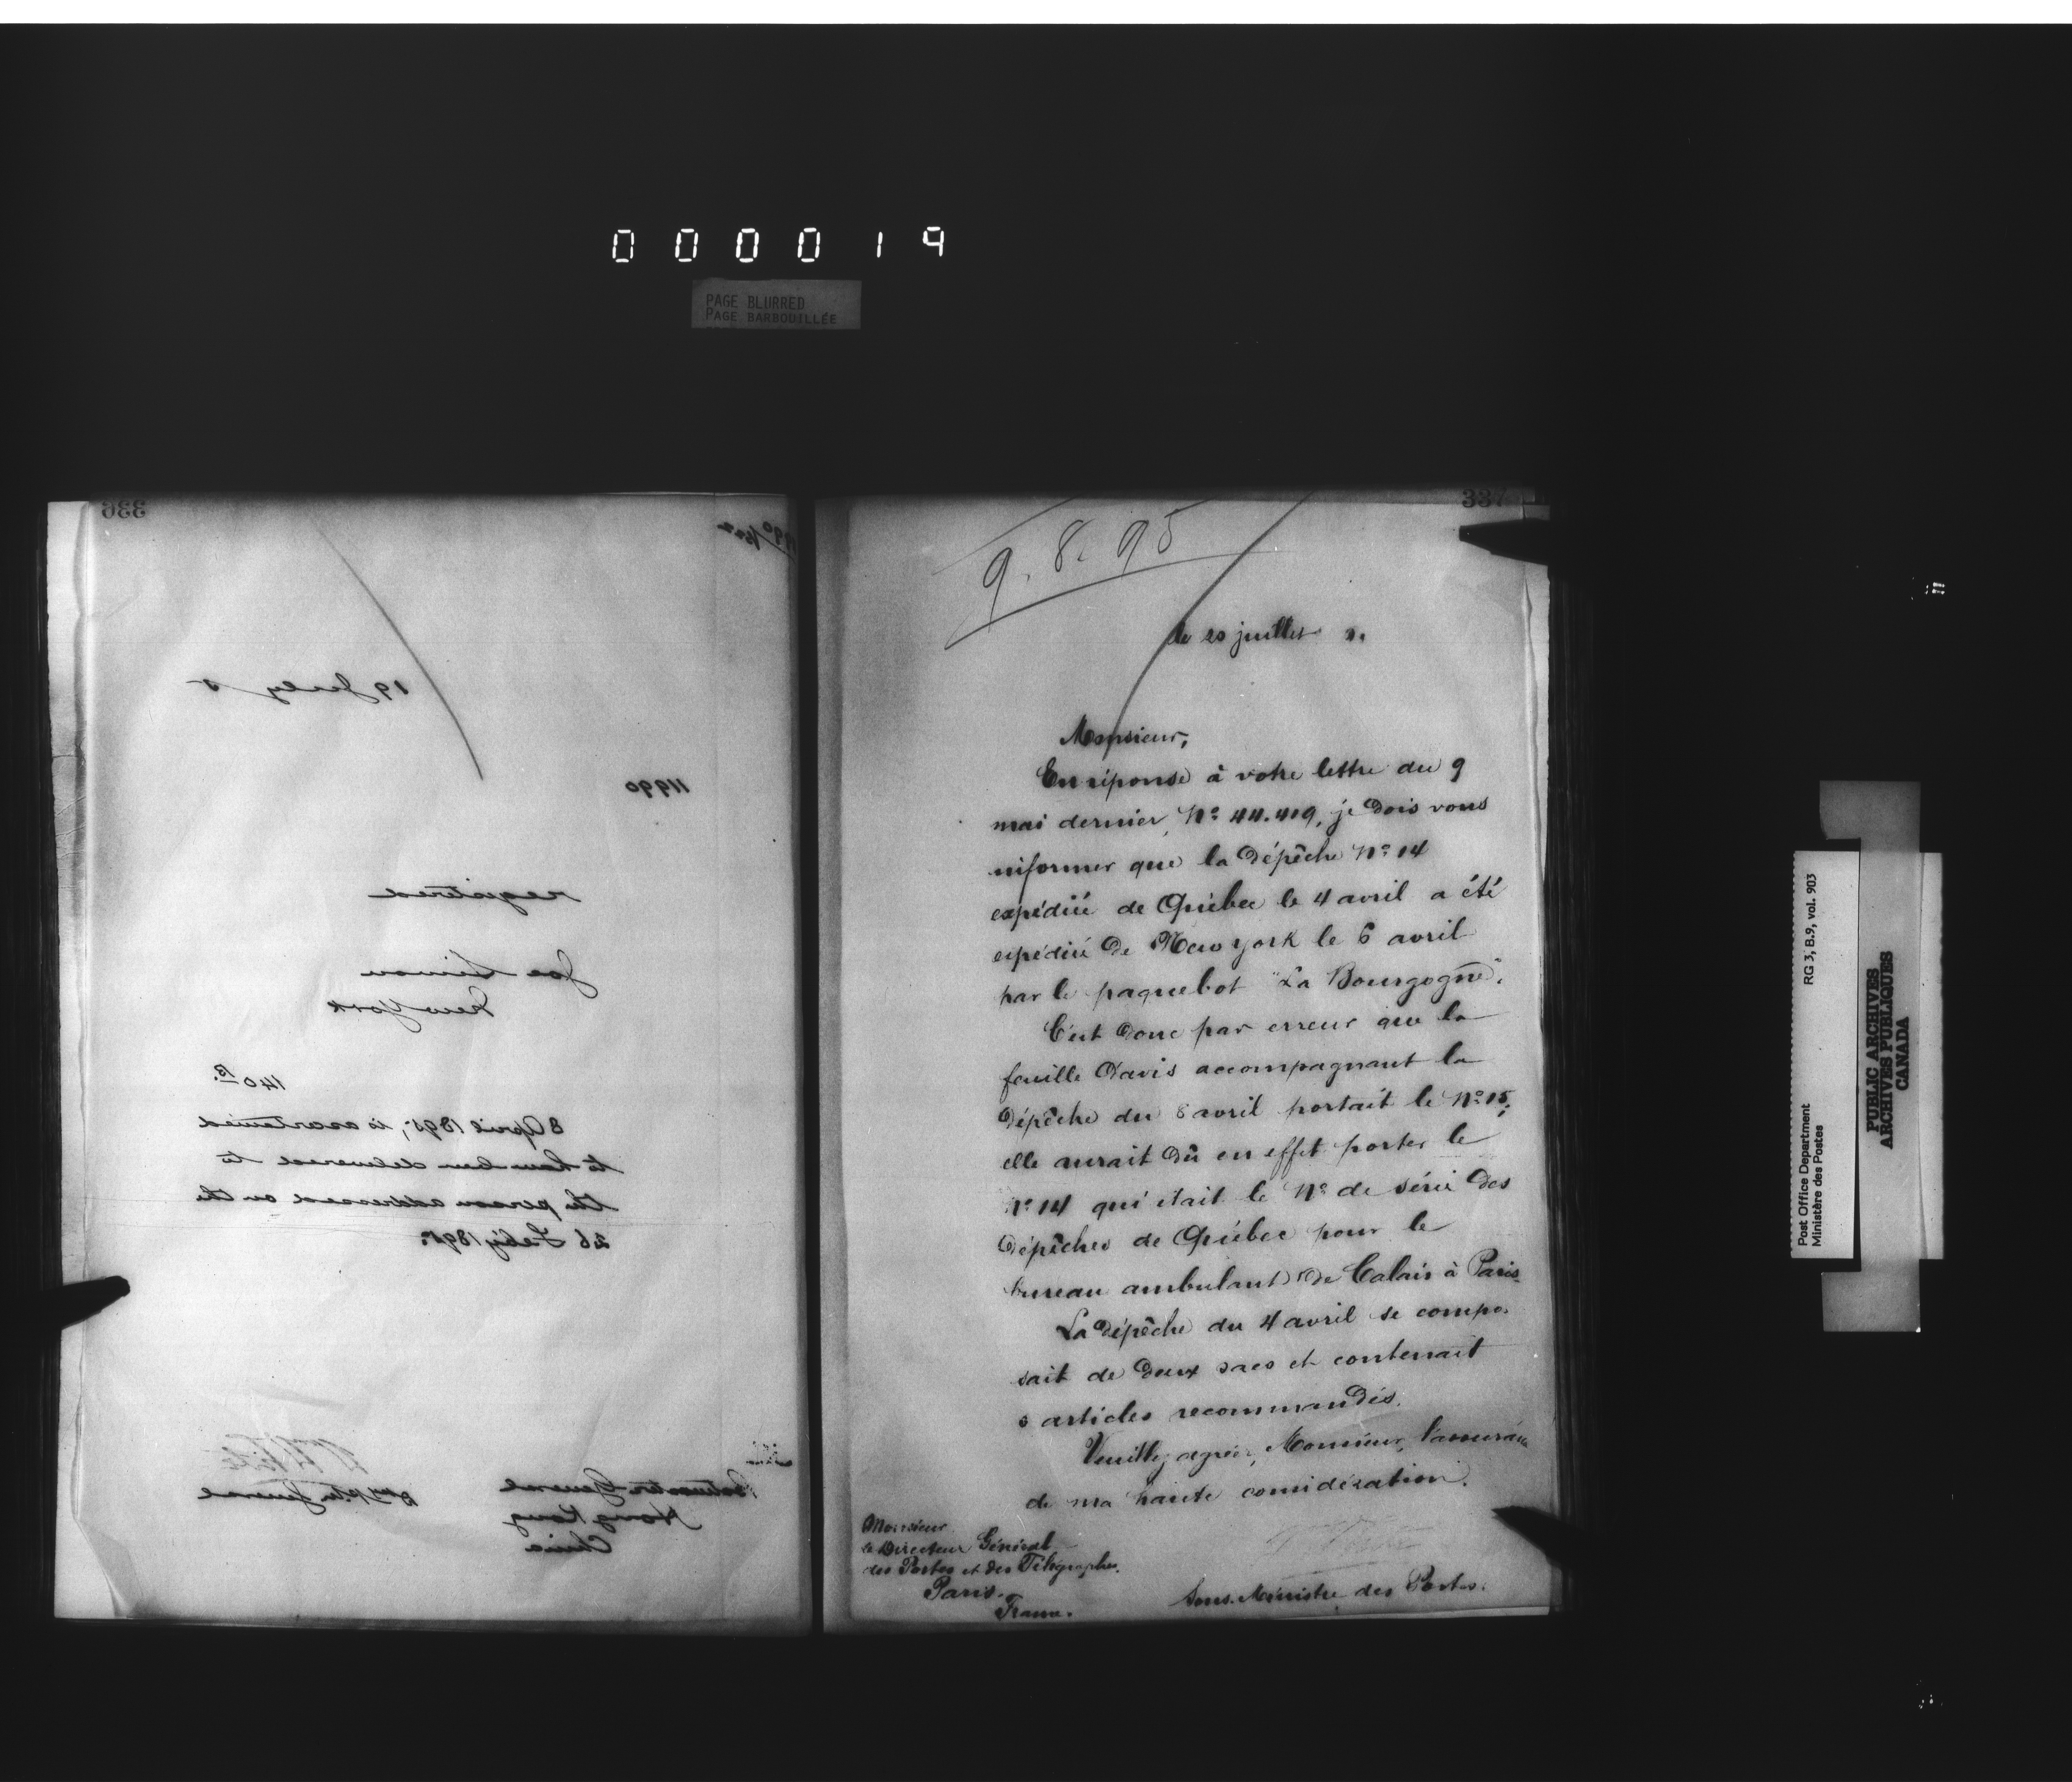 000019
PAGE BLURRED
PAGE BARBOUILLÉE
336
11990
19 July 5
11990
registered
Joe Simon
New York
140 B.
8 April 1895, is ascertained
to have been delivered to
the person addressed on the
26 Feb'y 1895.
Postmaster General
Hong Kong
China
337
9. 8. 95
le 20 juillet 5.
Monsieur,
En réponse à votre lettre du 9
mai dernier, No. 44.419, je dois vous
informer que la dépêche No. 14
expédiée de Québec le 4 avril a été
expédiée de New York le 6 avril
par le paquebot "La Bourgogne".
C'est donc par erreur que la
feuille d'avis accompagnant la
dépêche du avril portait le No. 15;
elle aurait dû en effet porter le
No. 14 qui était le No. de série des
dépêches de Québec pour le
bureau ambulant de Calais à Paris.
La dépêche du 4 avril se compo-
sait de deux sacs et contenait
articles recommandés.
Veuillez agréer, Monsieur, l'assurance
de ma haute considération.
Monsieur
le Directeur Général
des Postes et des Télégraphes.
Paris.
France.
Sous-Ministre des Postes.
Post Office Department
Ministère des Postes
RG 3, B.9, vol. 903
PUBLIC ARCHIVES
ARCHIVES PUBLIQUES
CANADA